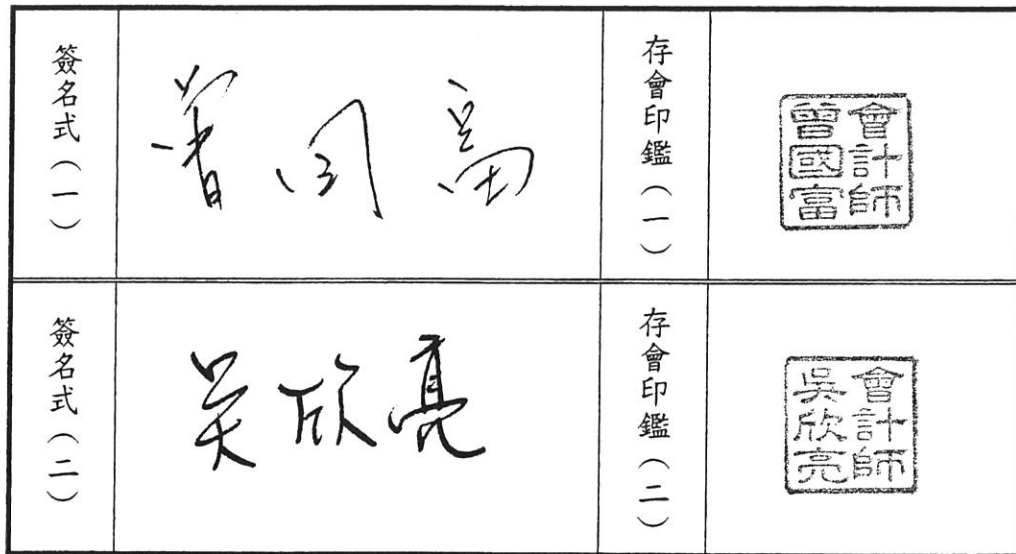 簽名式（一）
曾国富
存會印鑑（一）
會計師
曾國富
簽名式（二）
吳欣亮
存會印鑑（二）
會計師
吳欣亮